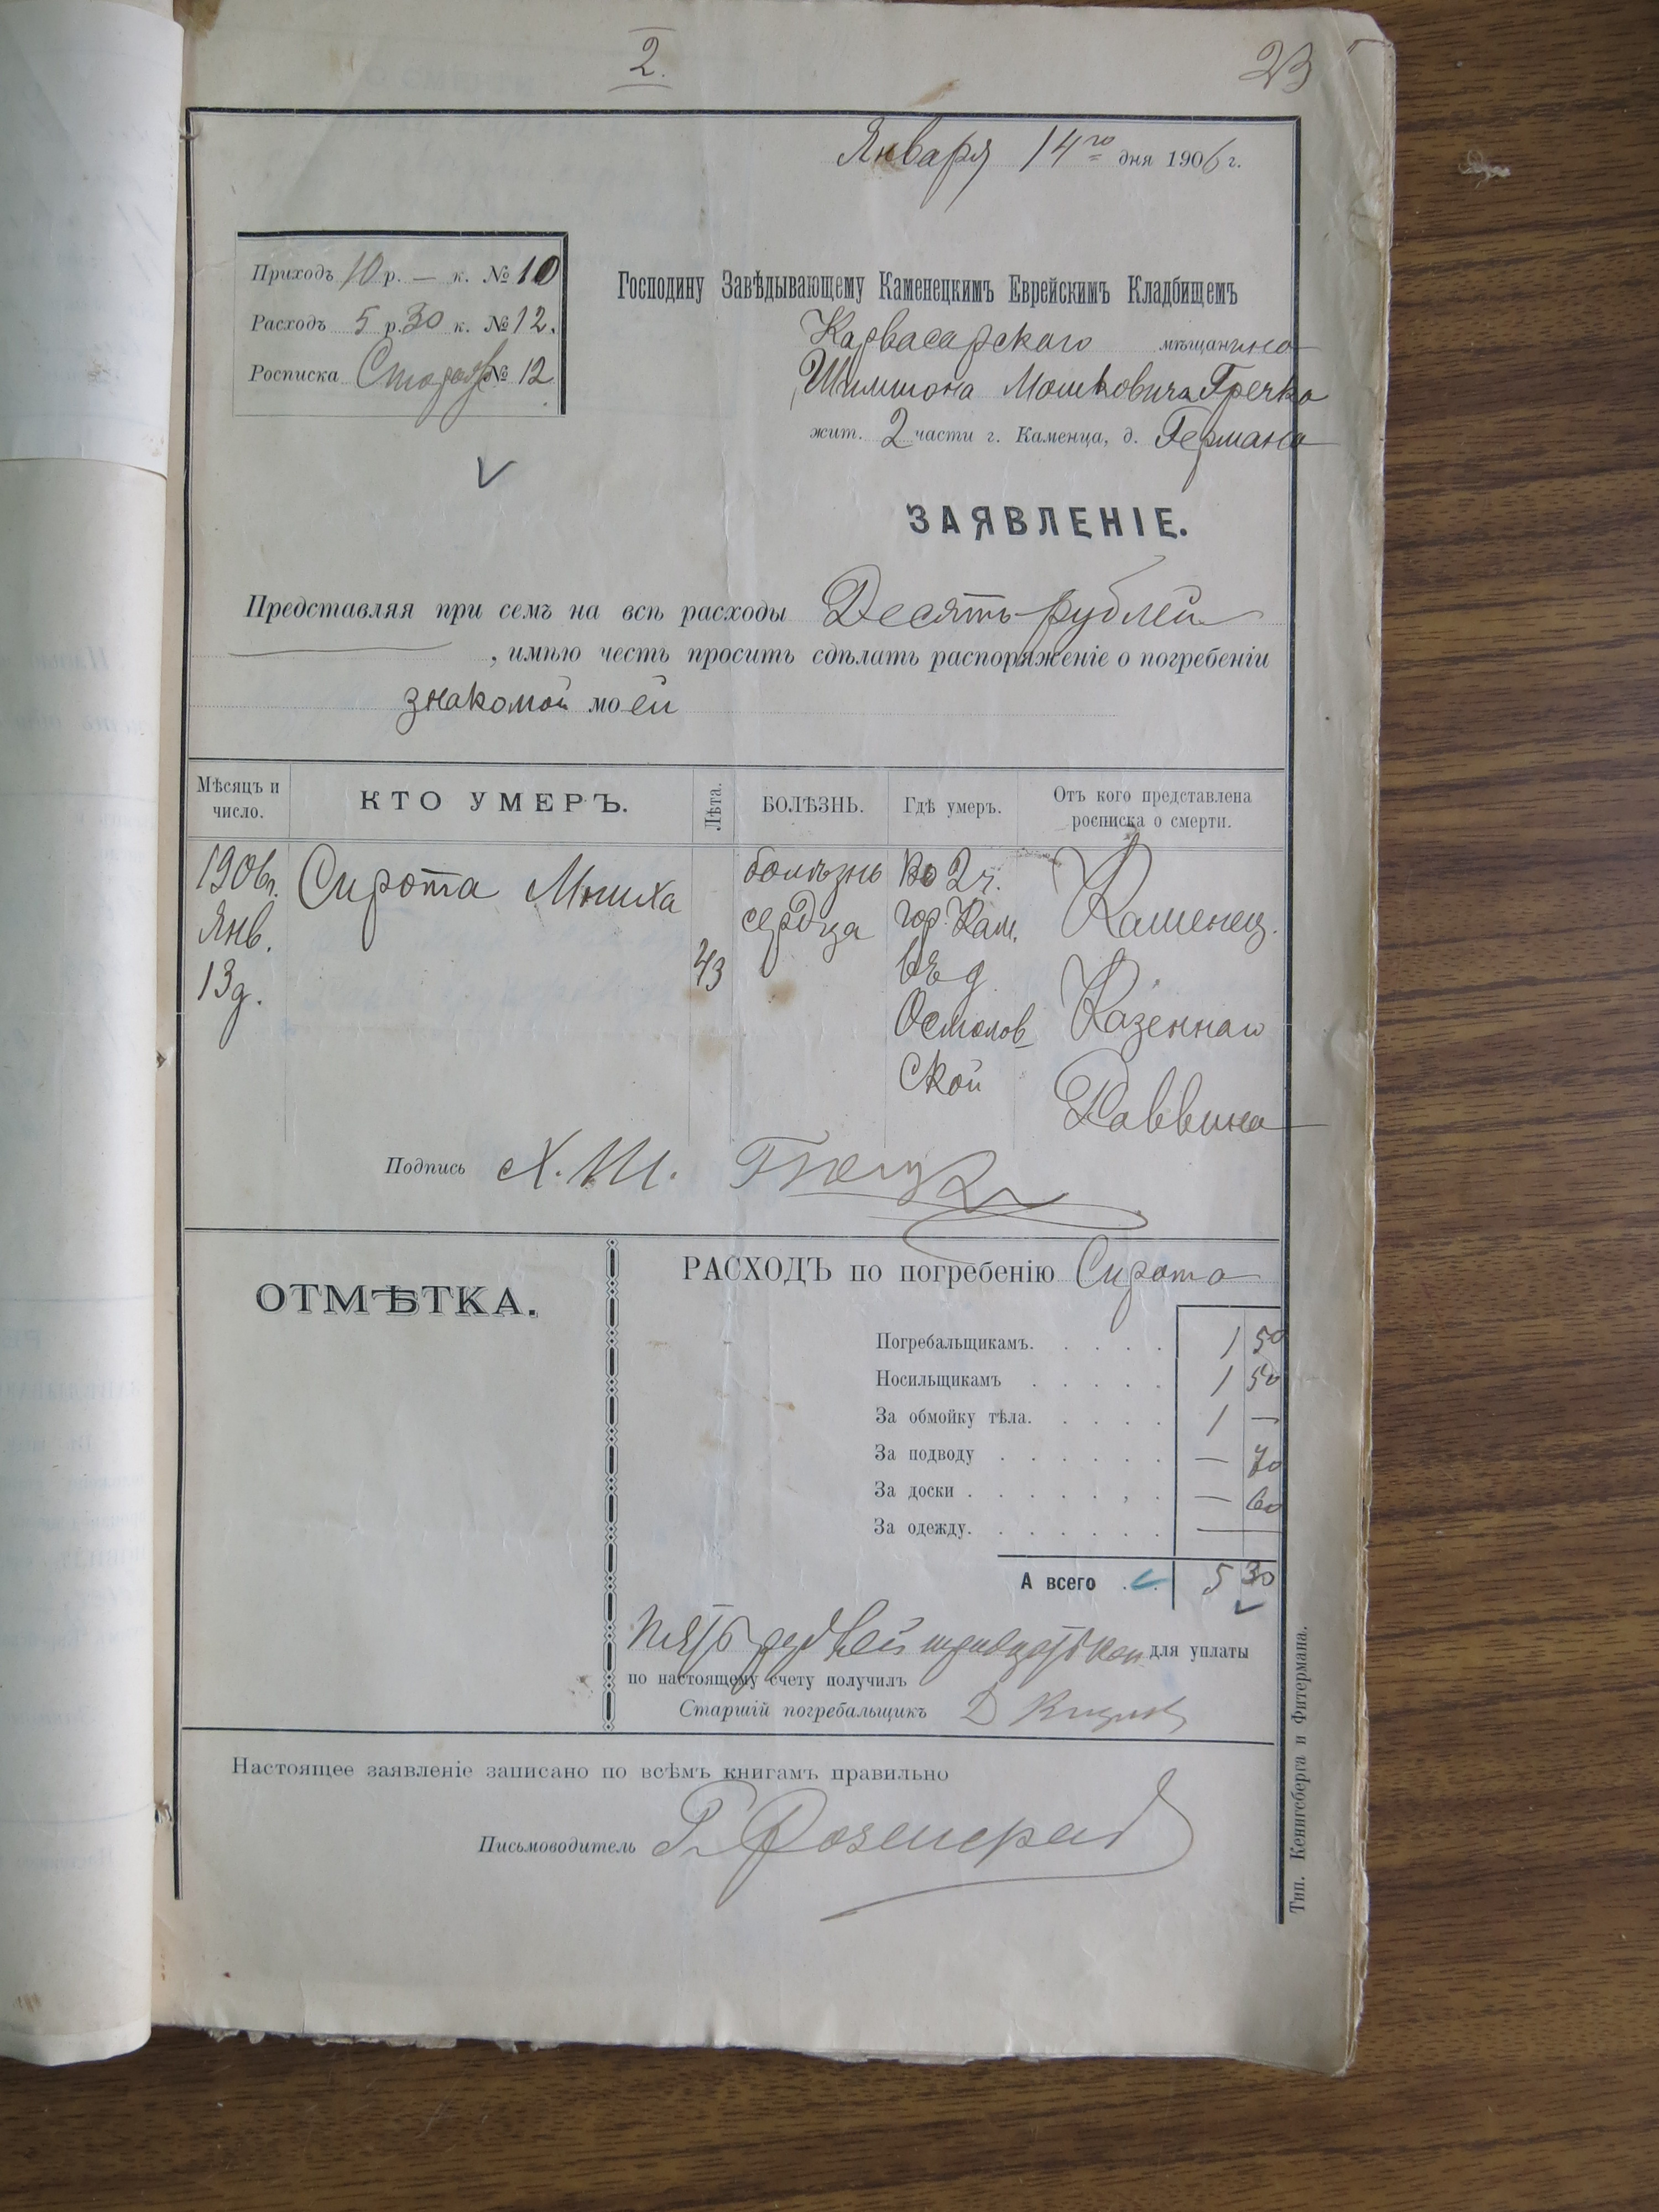 2.
23
Января 14го дня 1906 г.
Приходъ 10 р. — к. № 10
Расходъ 5 р. 30 к. № 12.
Росписка № 12
Господину Завѣдывающему Каменецкимъ Еврейскимъ Кладбищемъ
Карвасарскаго мѣщанина
Шимшона Мошковича Гречка
жит. 2 части г. Каменца, д. Германа
ЗАЯВЛЕНІЕ.
Представляя при семъ на всѣ расходы Десять рублей
, имѣю честь просить сдѣлать распоряженіе о погребеніи
знакомой моей
Мѣсяцъ и число.
КТО УМЕРЪ.
Лѣта.
БОЛѢЗНЬ.
Гдѣ умеръ.
Отъ кого представлена росписка о смерти.
1906г. Сирота болѣзнь во 2 ч. Каменец.
Янв. сердца гор. Кам.
13 д. 43 въ д. Казеннаго
Осмолов-
ской Раввина
Подпись Х. Ш.
ОТМѢТКА.
РАСХОДЪ по погребенію Сирота
Погребальщикамъ. . . . . 1 50
Носильщикамъ . . . . . 1 50
За обмойку тѣла. . . . . 1 —
За подводу . . . . . . — 70
За доски . . . . . , . — 60
За одежду. . . . . . . —
А всего . . 5 30
Пять рублей тридцать коп для уплаты
по настоящему счету получилъ
Старшій погребальщикъ Д
Настоящее заявленіе записано по всѣмъ книгамъ правильно
Письмоводитель
Тип. Кенигсберга и Фитермана.